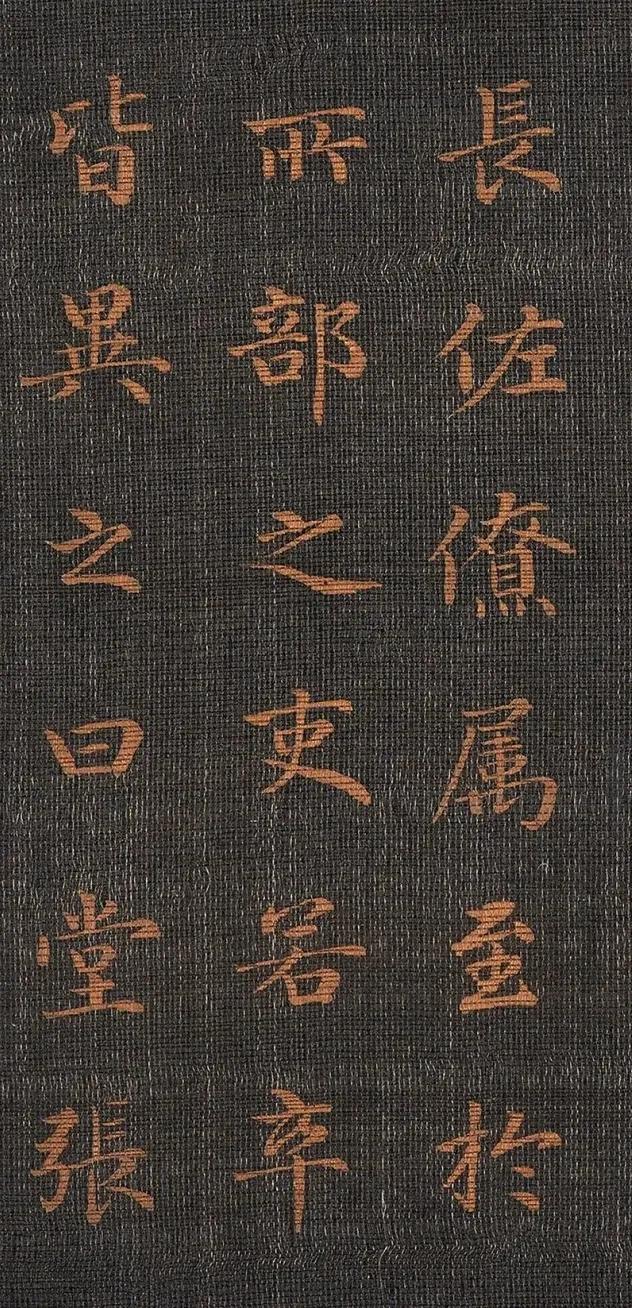 長佐僚属至於
所部之吏若卒
皆異之曰堂張